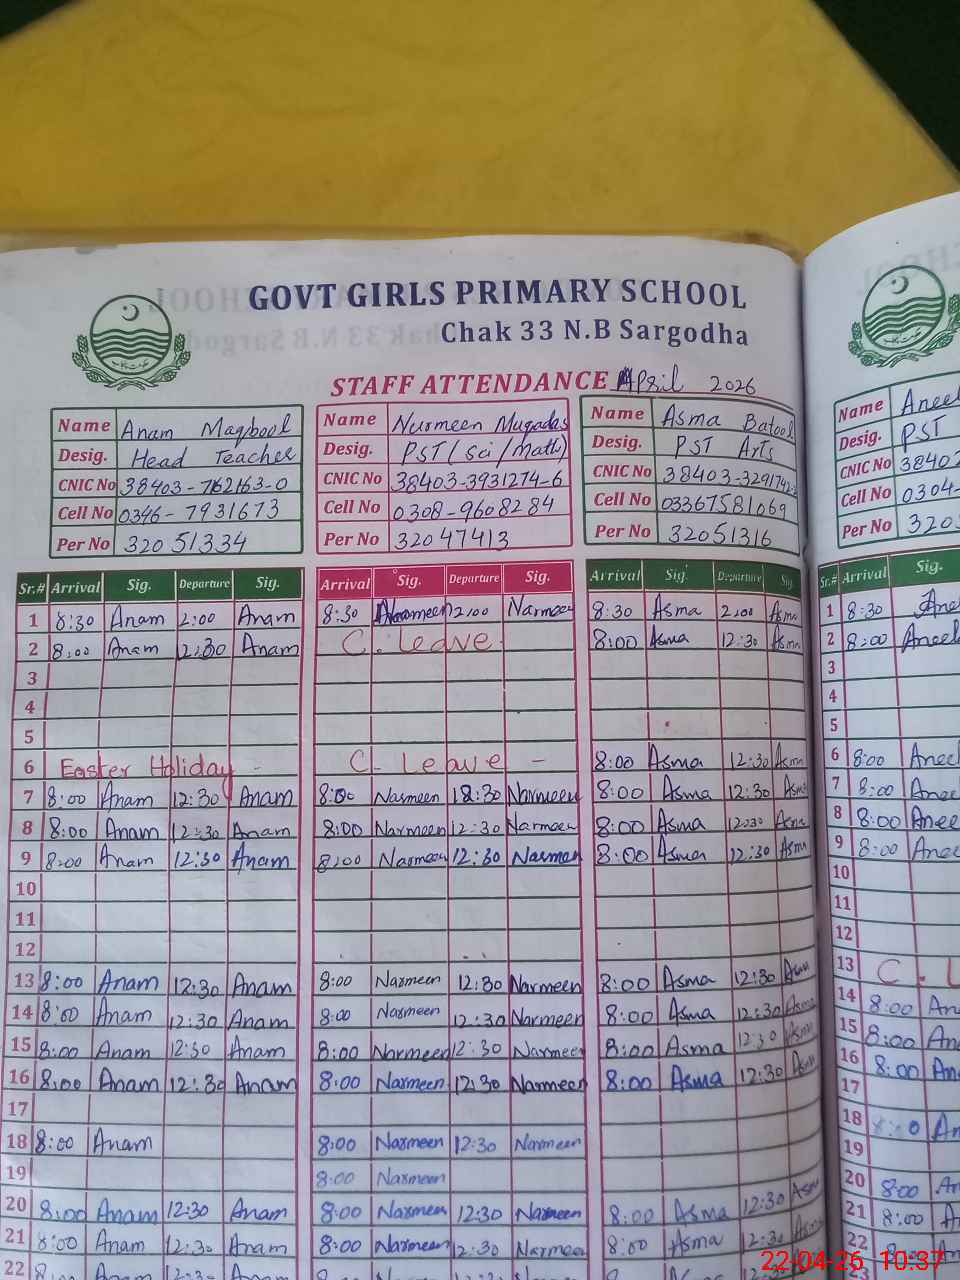 GOVT GIRLS PRIMARY SCHOOL
Chak 33 N.B Sargodha
STAFF ATTENDANCE April 2026
Name Anam Maqbool
Desig. Head Teacher
CNIC No 38403-7162163-0
Cell No 0346-7931673
Per No 32051334
Name Nurmeen Muqadas
Desig. PST (Sci/Math)
CNIC No 38403-3931274-6
Cell No 0308-9608284
Per No 32047413
Name Asma Batool
Desig. PST Arts
CNIC No
Cell No 03367581069
Per No 32051316
Name
Desig. PST
CNIC No
Cell No 0304-
Per No
Sr.# Arrival Sig. Departure Sig. Arrival Sig. Departure Sig. Arrival Sig. Departure Sig. Sr.# Arrival Sig.
1 8:30 Anam 2:00 Anam 8:30 Narmeen 2:00 Narmeen 8:30 Asma 2:00 Asma 1 8:30
2 8:00 Anam 12:30 Anam C. Leave 8:00 Asma 12:30 Asma 2 8:00
3 3
4 4
5 5
6 Easter Holiday - C. Leave - 8:00 Asma 12:30 Asma 6 8:00
7 8:00 Anam 12:30 Anam 8:00 Narmeen 12:30 Narmeen 8:00 Asma 12:30 Asma 7 8:00
8 8:00 Anam 12:30 Anam 8:00 Narmeen 12:30 Narmeen 8:00 Asma 1230 Asma 8 8:00
9 8:00 Anam 12:30 Anam 8:00 Narmeen 12:30 Narmeen 8:00 Asma 12:30 Asma 9 8:00
10 10
11 11
12 12
13 8:00 Anam 12:30 Anam 8:00 Narmeen 12:30 Narmeen 8:00 Asma 12:30 Asma 13 C. L
14 8:00 Anam 12:30 Anam 8:00 Narmeen 12:30 Narmeen 8:00 Asma 12:30 Asma 14 8:00
15 8:00 Anam 12:30 Anam 8:00 Narmeen 12:30 Narmeen 8:00 Asma 12:30 Asma 15 8:00
16 8:00 Anam 12:30 Anam 8:00 Narmeen 12:30 Narmeen 8:00 Asma 12:30 Asma 16 8:00
17 17
18 8:00 Anam 8:00 Narmeen 12:30 Narmeen 18
19 8:00 Narmeen 19
20 8:00 Anam 12:30 Anam 8:00 Narmeen 12:30 Narmeen 8:00 Asma 12:30 Asma 20 8:00
21 8:00 Anam 12:30 Anam 8:00 Narmeen 12:30 Narmeen 8:00 Asma 12:30 21 8:00
22 22
22-04-26 10:37